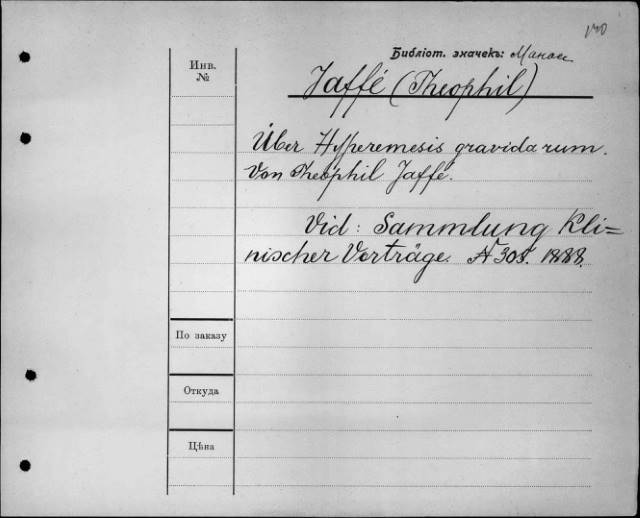 Библіот. значекъ:
Инв.
№
Jaffé (Theophil)
Über Hyperemesis gravidarum.
Von Theóphil Jaffé.
Vid: Sammlung Kli=
nischer Vorträge. № 305. 1888.
По заказу
Откуда
Цѣна